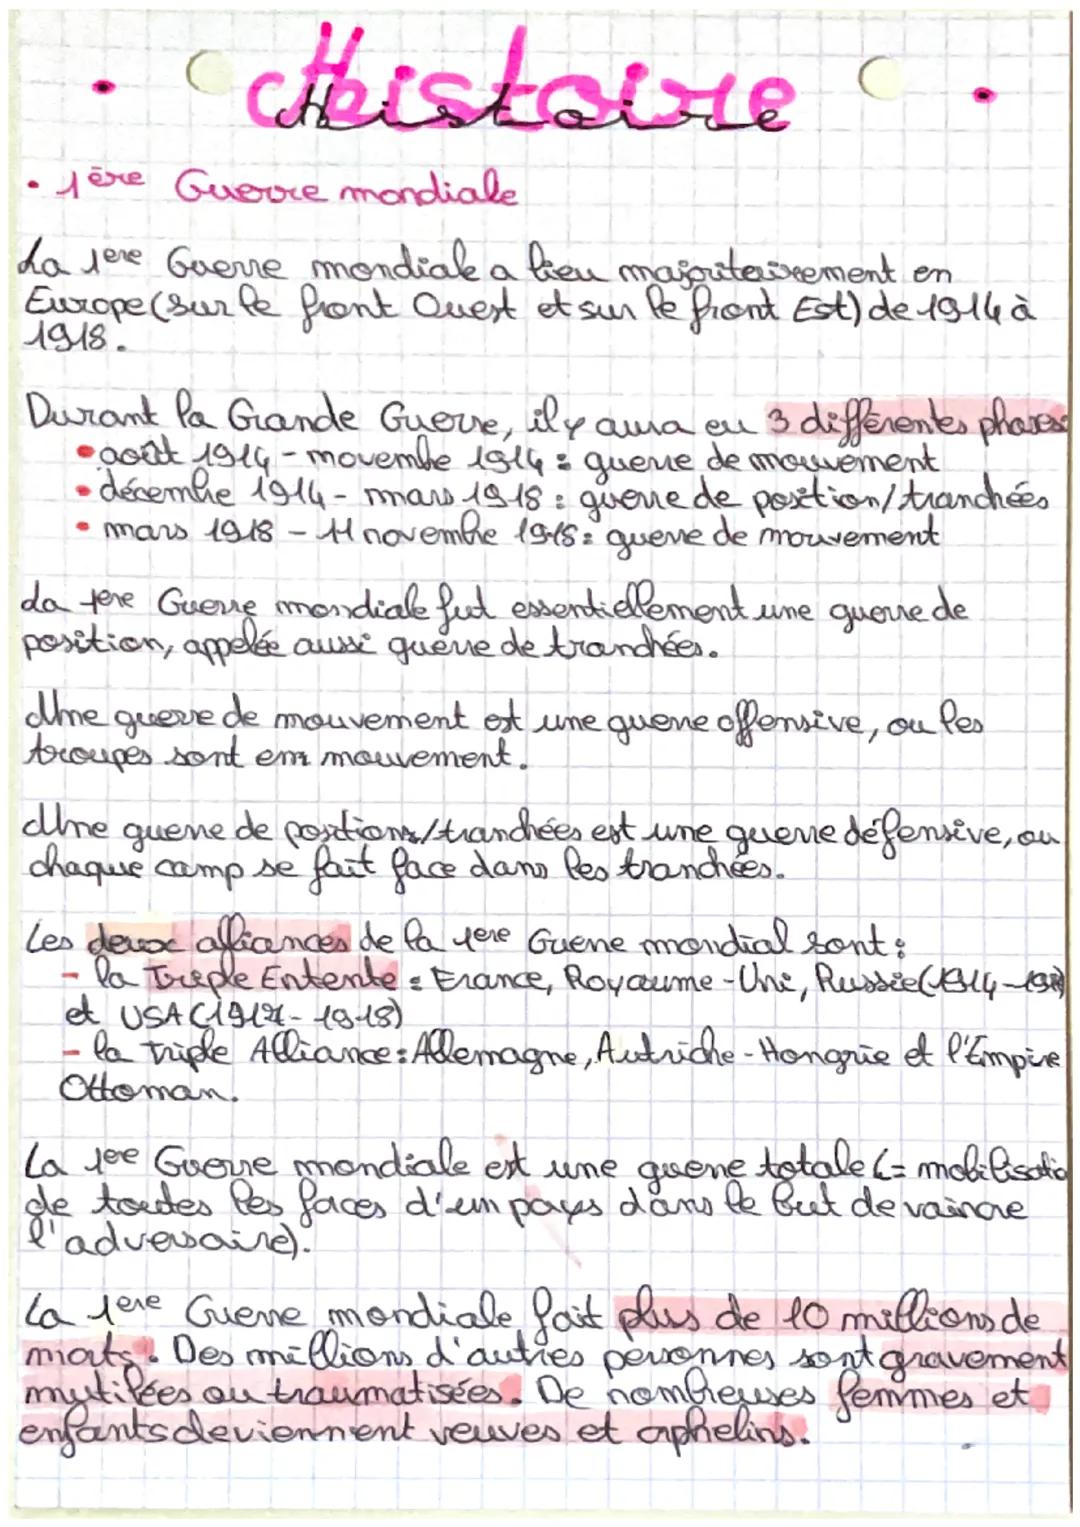 Histoire
• 1ère Guerre mondiale
La 1ere Guerre mondiale a lieu majoritairement en
Europe (sur le front Ouest et sur le front Est) de 1914 à
1918.
Durant la Grande Guerre, il y aura eu 3 différentes phases
• août 1914 - novembre 1914 : guerre de mouvement
• décembre 1914 - mars 1918 : guerre de position/tranchées
• mars 1918 - 11 novembre 1918 : guerre de mouvement
La 1ere Guerre mondiale fut essentiellement une guerre de
position, appelée aussi guerre de tranchées.
Une guerre de mouvement est une guerre offensive, ou les
troupes sont en mouvement.
Une guerre de positions/tranchées est une guerre défensive, ou
chaque camp se fait face dans les tranchées.
Les deux alliances de la 1ere Guerre mondial sont :
- la Triple Entente : France, Royaume-Uni, Russie (1914-1917)
et USA (1917-1918)
- la triple Alliance : Allemagne, Autriche-Hongrie et l'Empire
Ottoman.
La 1ere Guerre mondiale est une guerre totale (= mobilisatio
de toutes les faces d'un pays dans le but de vaincre
l'adversaire).
La 1ere Guerre mondiale fait plus de 10 millions de
morts. Des millions d'autres personnes sont gravement
mutilées ou traumatisées. De nombreuses femmes et
enfants deviennent veuves et orphelins.